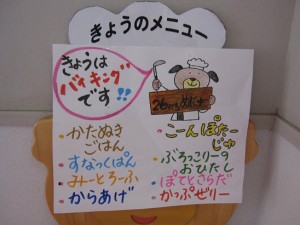 きょうのメニュー
きょうは
バイキング
です!!
かたぬき
ごはん
すなっくぱん
みーとろーふ
からあげ
こーんぽたー
じゅ
ぶろっこりーの
おひたし
ぽてとさらだ
かっぷゼリー